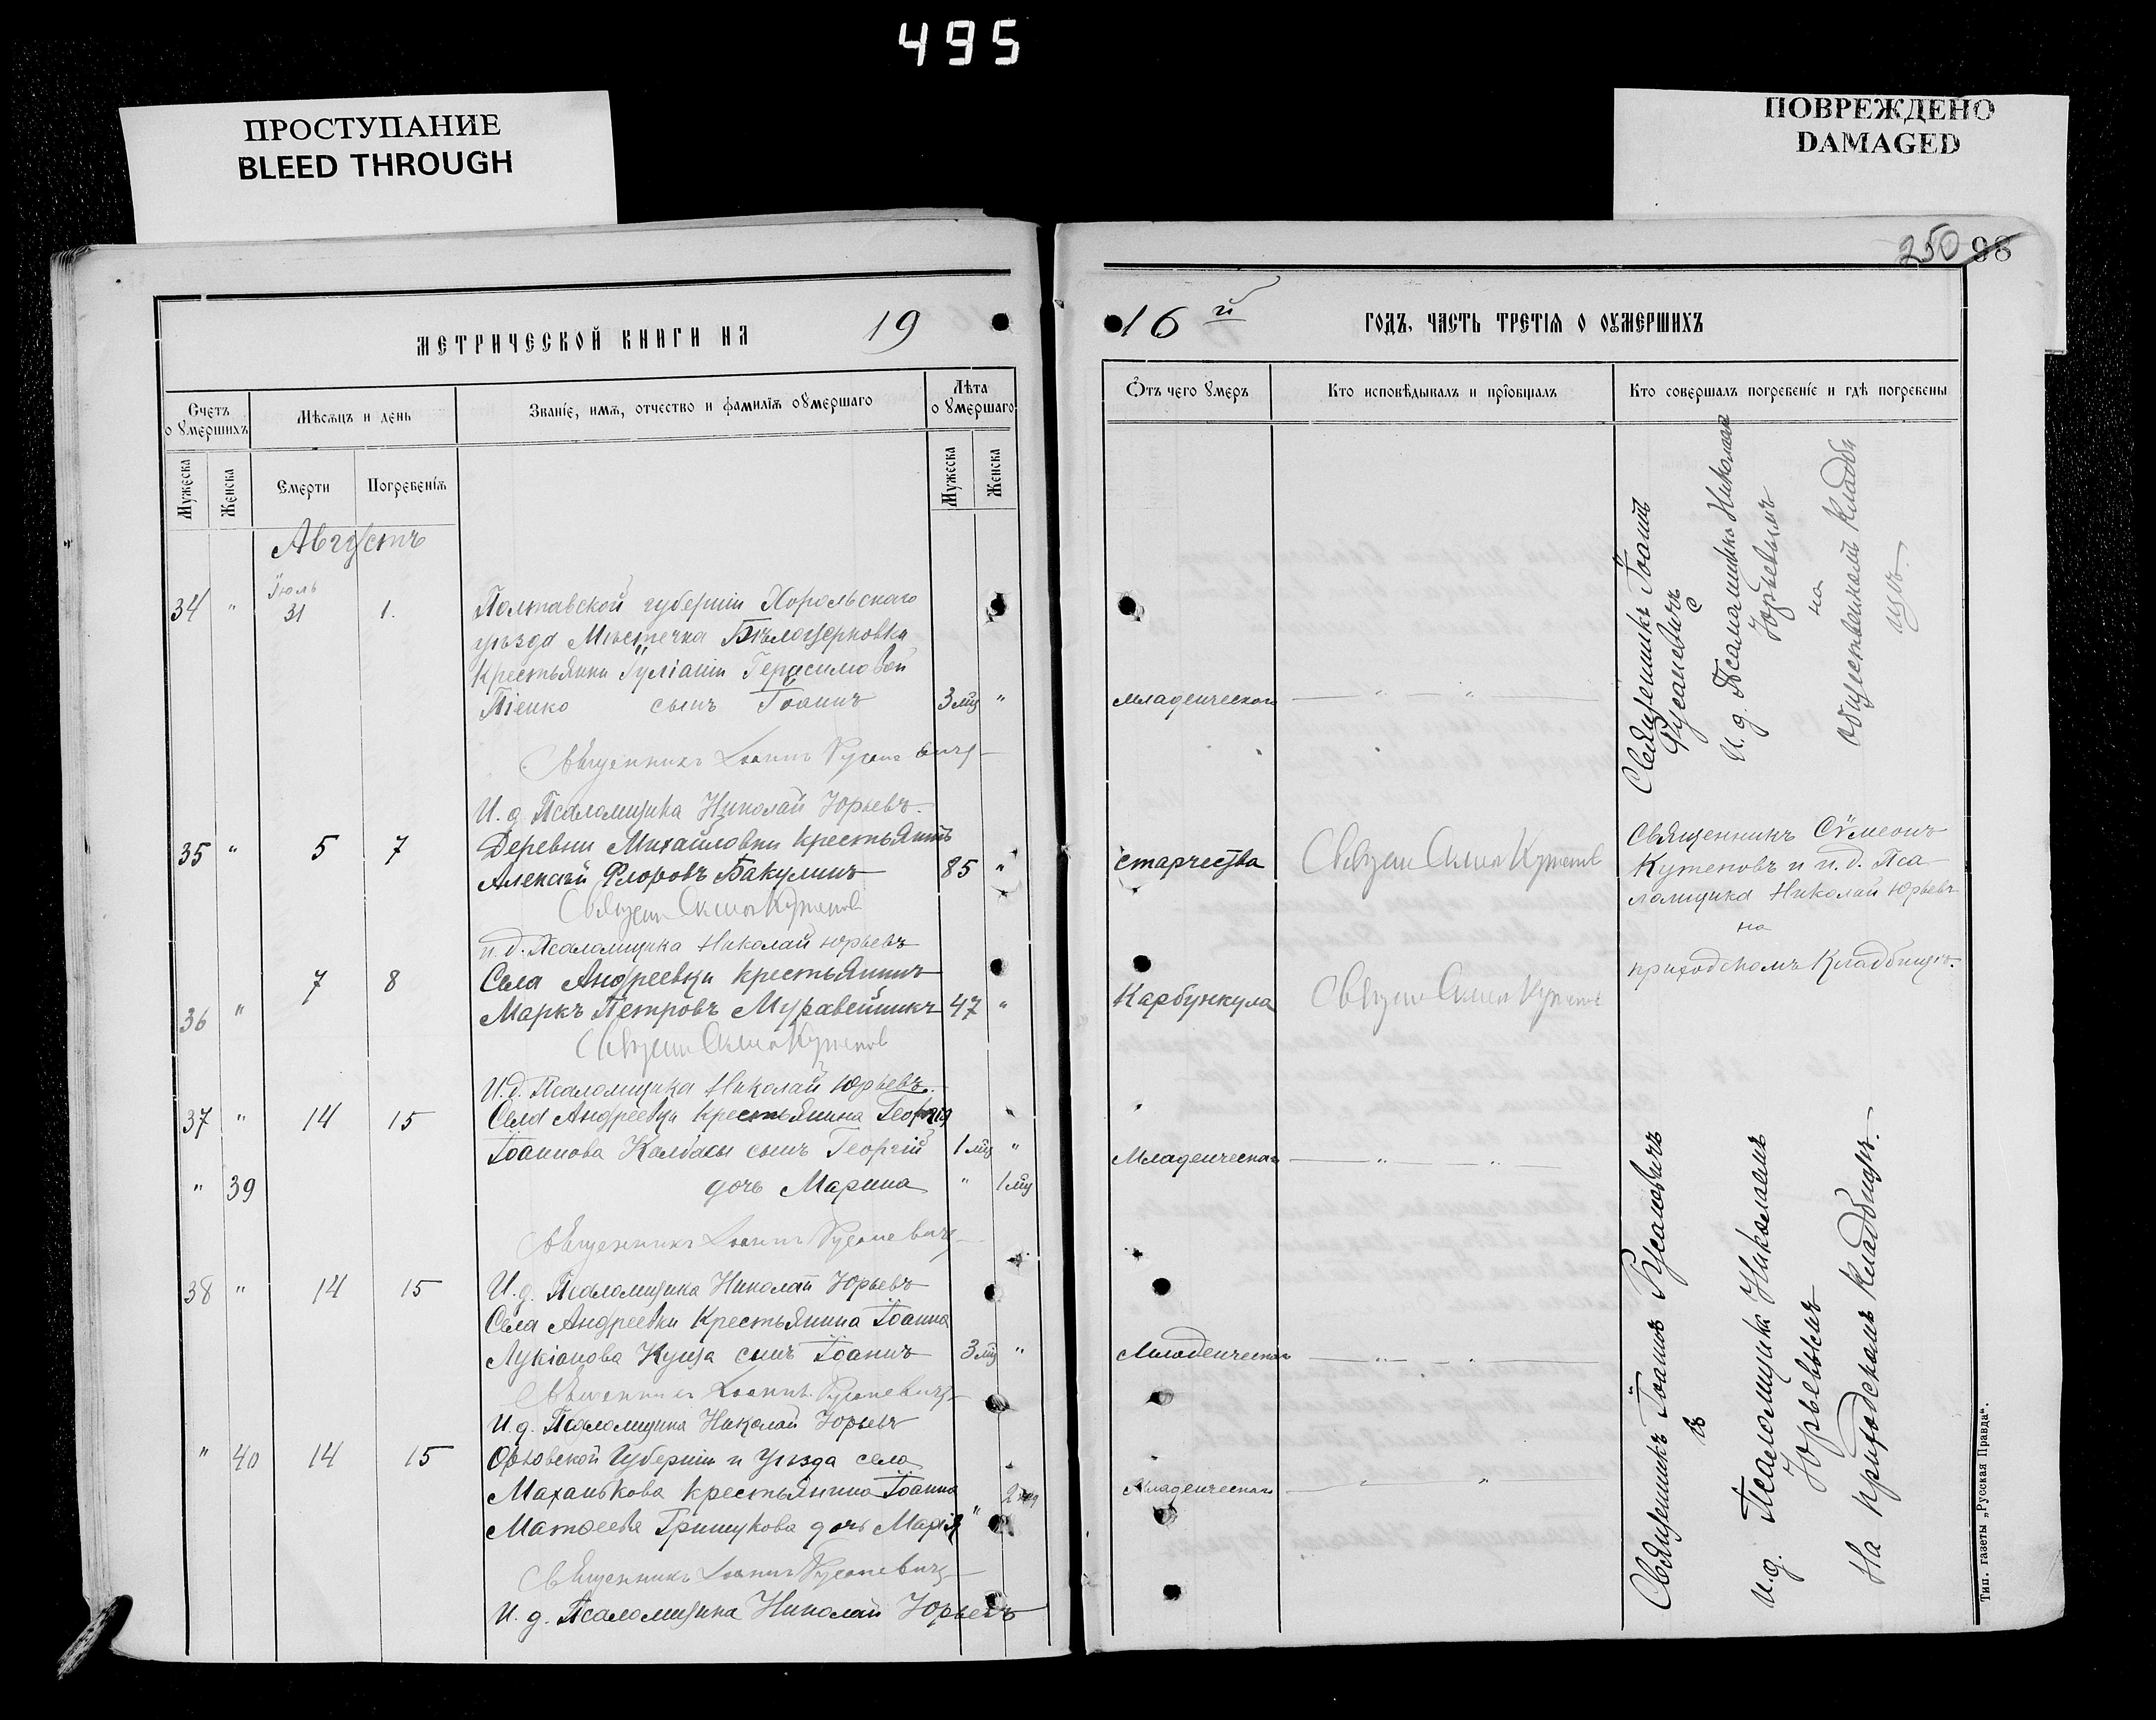 495
ПРОСТУПАНИЕ
BLEED THROUGH
ПОВРЕЖДЕНО
DAMAGED
250 98
МЕТРИЧЕСКОЙ КНИГИ НА 19
16 й ГОДЪ, ЧАСТЬ ТРЕТІЯ О ОУМЕРШИХЪ
Счетъ о умершихъ
Мѣсяцъ и день
Званіе, имя, отчество и фамилія оумершаго
Лѣта оумершаго
Отъ чего умеръ
Кто исповѣдывалъ и пріобщалъ
Кто совершалъ погребеніе и гдѣ погребены
Мужеска
Женска
Смерти
Погребенія
Мужеска
Женска
Августъ
Іюль
34 " 31 1. Полтавской губерніи Хорольскаго
уѣзда Мѣстечка Бѣлоцерковки
крестьянки Іуліаніи Герасимовой
Піенко сынъ Іоаннъ 3 мц " младенческой — " — " —
Священникъ Іоаннъ Русаневичъ
И. д. Псаломщика Николай Юрьевъ.
Священникъ Іоаннъ
Русаневичъ
с
И. д. Псаломщика Николаемъ
Юрьевымъ
на
общественномъ кладби
щѣ.
35 " 5 7 Деревни Михайловки крестьянинъ
Алексѣй Флоровъ Бакулинъ 85 " старчества
и. д. Псаломщика Николай Юрьевъ
Священникъ Сѵмеонъ
Кутеповъ и и. д. Пса
ломщика Николай Юрьевъ
на
приходскомъ Кладбищѣ.
7 8 Села Андреевки крестьянинъ
36 " Маркъ Петровъ Муравейникъ 47 " Карбункула
И. д. Псаломщика Николай Юрьевъ.
37 " 14 15 Села Андреевки крестьянина Георгія
Іоаннова Калбасы сынъ Георгій 1 мц " Младенческой — " — " —
" 39 дочь Марина " 1 мц
Священникъ Іоаннъ Русаневичъ
38 " 14 15 И. д. Псаломщика Николай Юрьевъ
Села Андреевки Крестьянина Іоанна
Лукіанова Куца сынъ Іоаннъ 3 мц " Младенческой — " — " —
Священникъ Іоаннъ Русаневичъ
И. д. Псаломщика Николай Юрьевъ
" 40 14 15 Орловской Губерніи и Уѣзда села
Маханькова крестьянина Іоанна
Матѳеева Гришукова дочь Марія " Младенческой — " — " —
Священникъ Іоаннъ Русаневичъ
И. д. Псаломщика Николай Юрьевъ
Священникъ Іоаннъ Русаневичъ
съ
и. д. Псаломщика Николаемъ
Юрьевымъ
На приходскомъ Кладбищѣ.
Тип. газеты „Русская Правда".